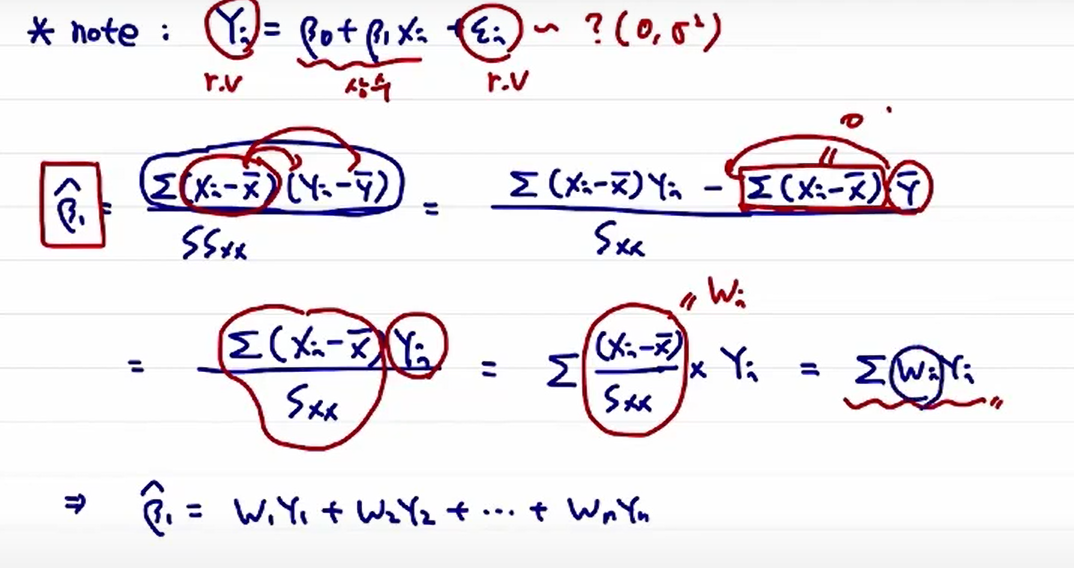 * note : Yᵢ = β₀ + β₁xᵢ + εᵢ ~ ? (0, σ²)
r.v 상수 r.v
0
β̂₁ = Σ(xᵢ-x̄)(Yᵢ-Ȳ) / SSxx = Σ(xᵢ-x̄)Yᵢ - Σ(xᵢ-x̄)Ȳ / Sxx
= Σ(xᵢ-x̄)Yᵢ / Sxx = Σ (xᵢ-x̄)/Sxx × Yᵢ = ΣWᵢYᵢ
〃 Wᵢ
⇒ β̂₁ = W₁Y₁ + W₂Y₂ + ··· + WₙYₙ